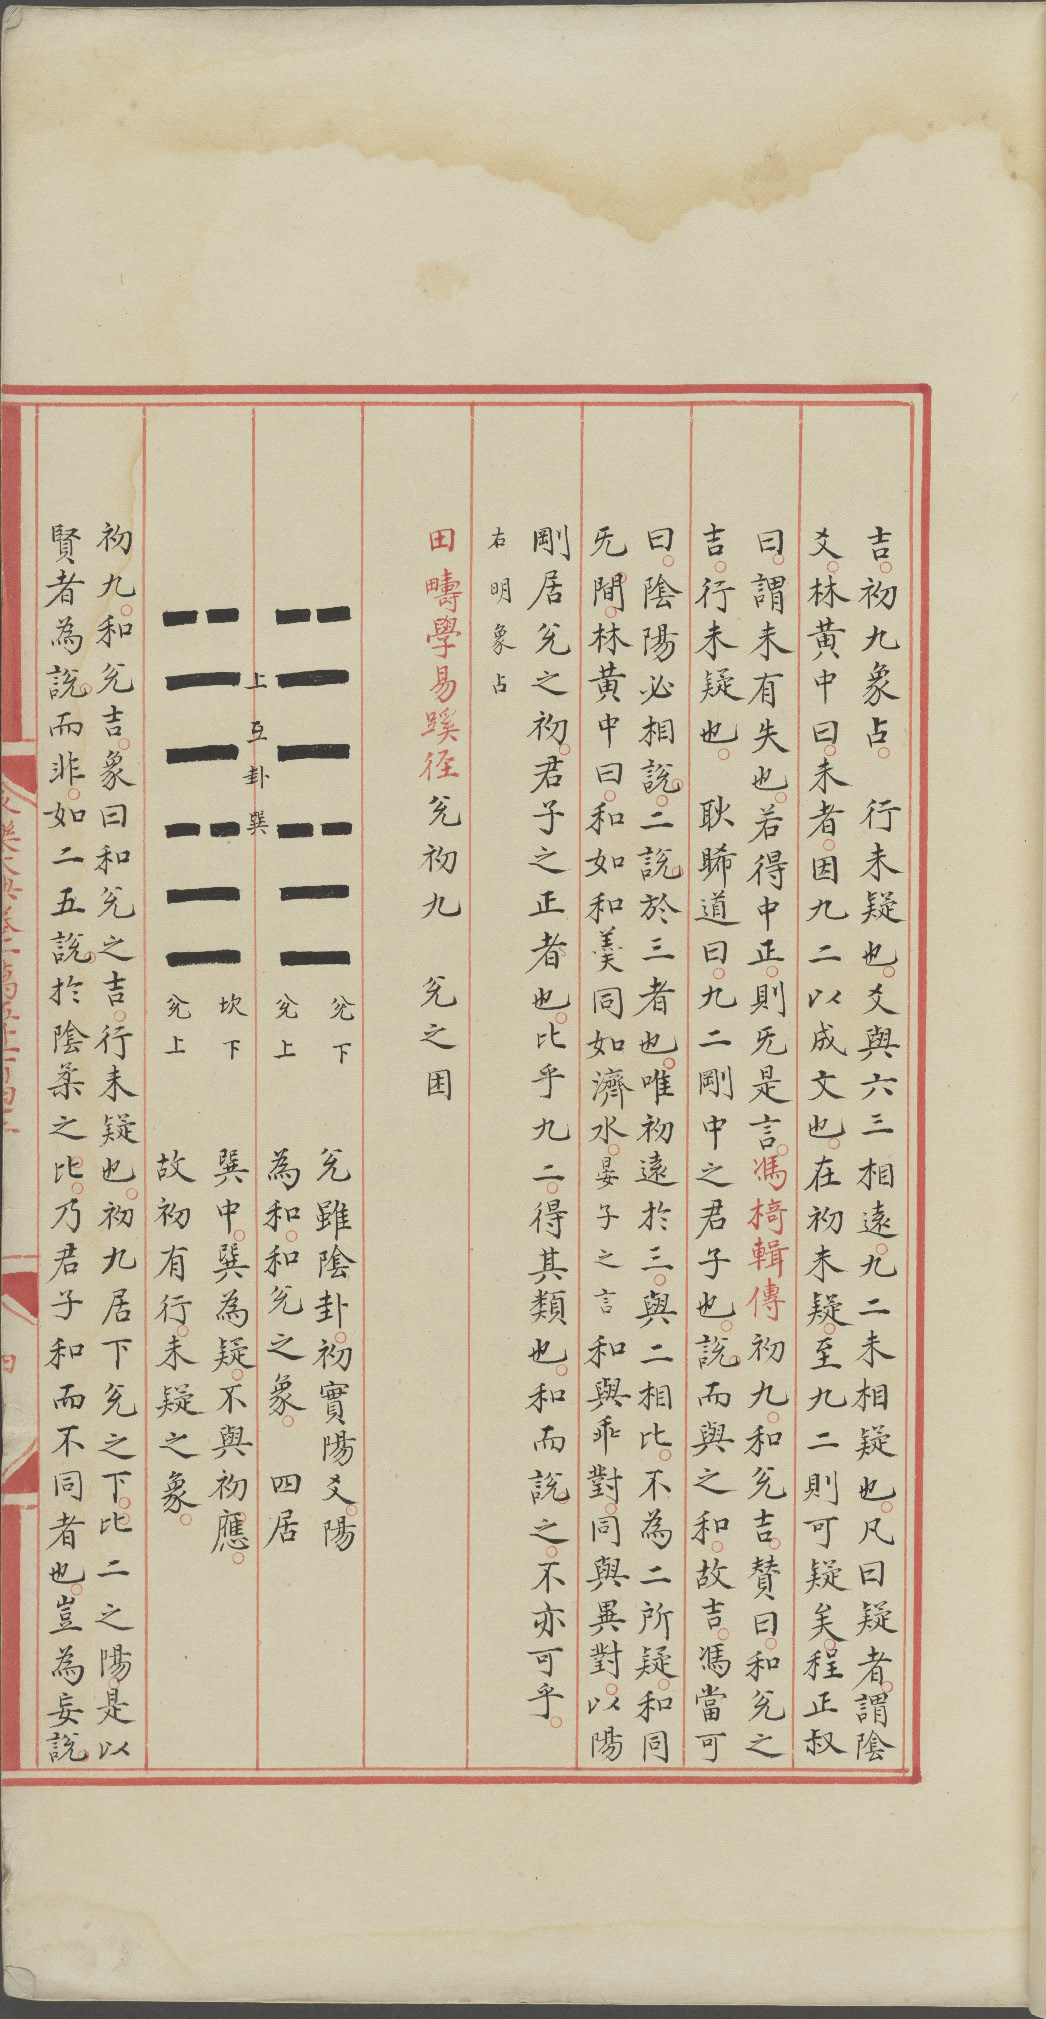 吉初九象占　行未疑也爻與六三相遠九二未相疑也凡曰疑者謂陰
爻林黃中曰未者因九二以成文也在初未疑至九二則可疑矣程正叔
曰謂未有失也若得中正則旡是言馮椅輯傳初九和兊吉贊曰和兊之
吉行未疑也　耿睎道曰九二剛中之君子也說而與之和故吉馮當可
曰陰陽必相說二說於三者也唯初遠於三與二相比不為二所疑和同
旡間林黃中曰和如和羹同如濟水晏子之言和與乖對同與異對以陽
剛居兊之初君子之正者也比乎九二得其類也和而說之不亦可乎
右明象占
田疇學易蹊徑兊初九　兊之困
兊下
兊上
兊雖陰卦初實陽爻陽
為和和兊之象　四居
上互卦巽
坎下
兊上
巽中巽為疑不與初應
故初有行未疑之象
初九和兊吉象曰和兊之吉行未疑也初九居下兊之下比二之陽是以
賢者為說而非如二五說於陰柔之比乃君子和而不同者也豈為妄說
永樂大典卷二萬五千一百四十二
四